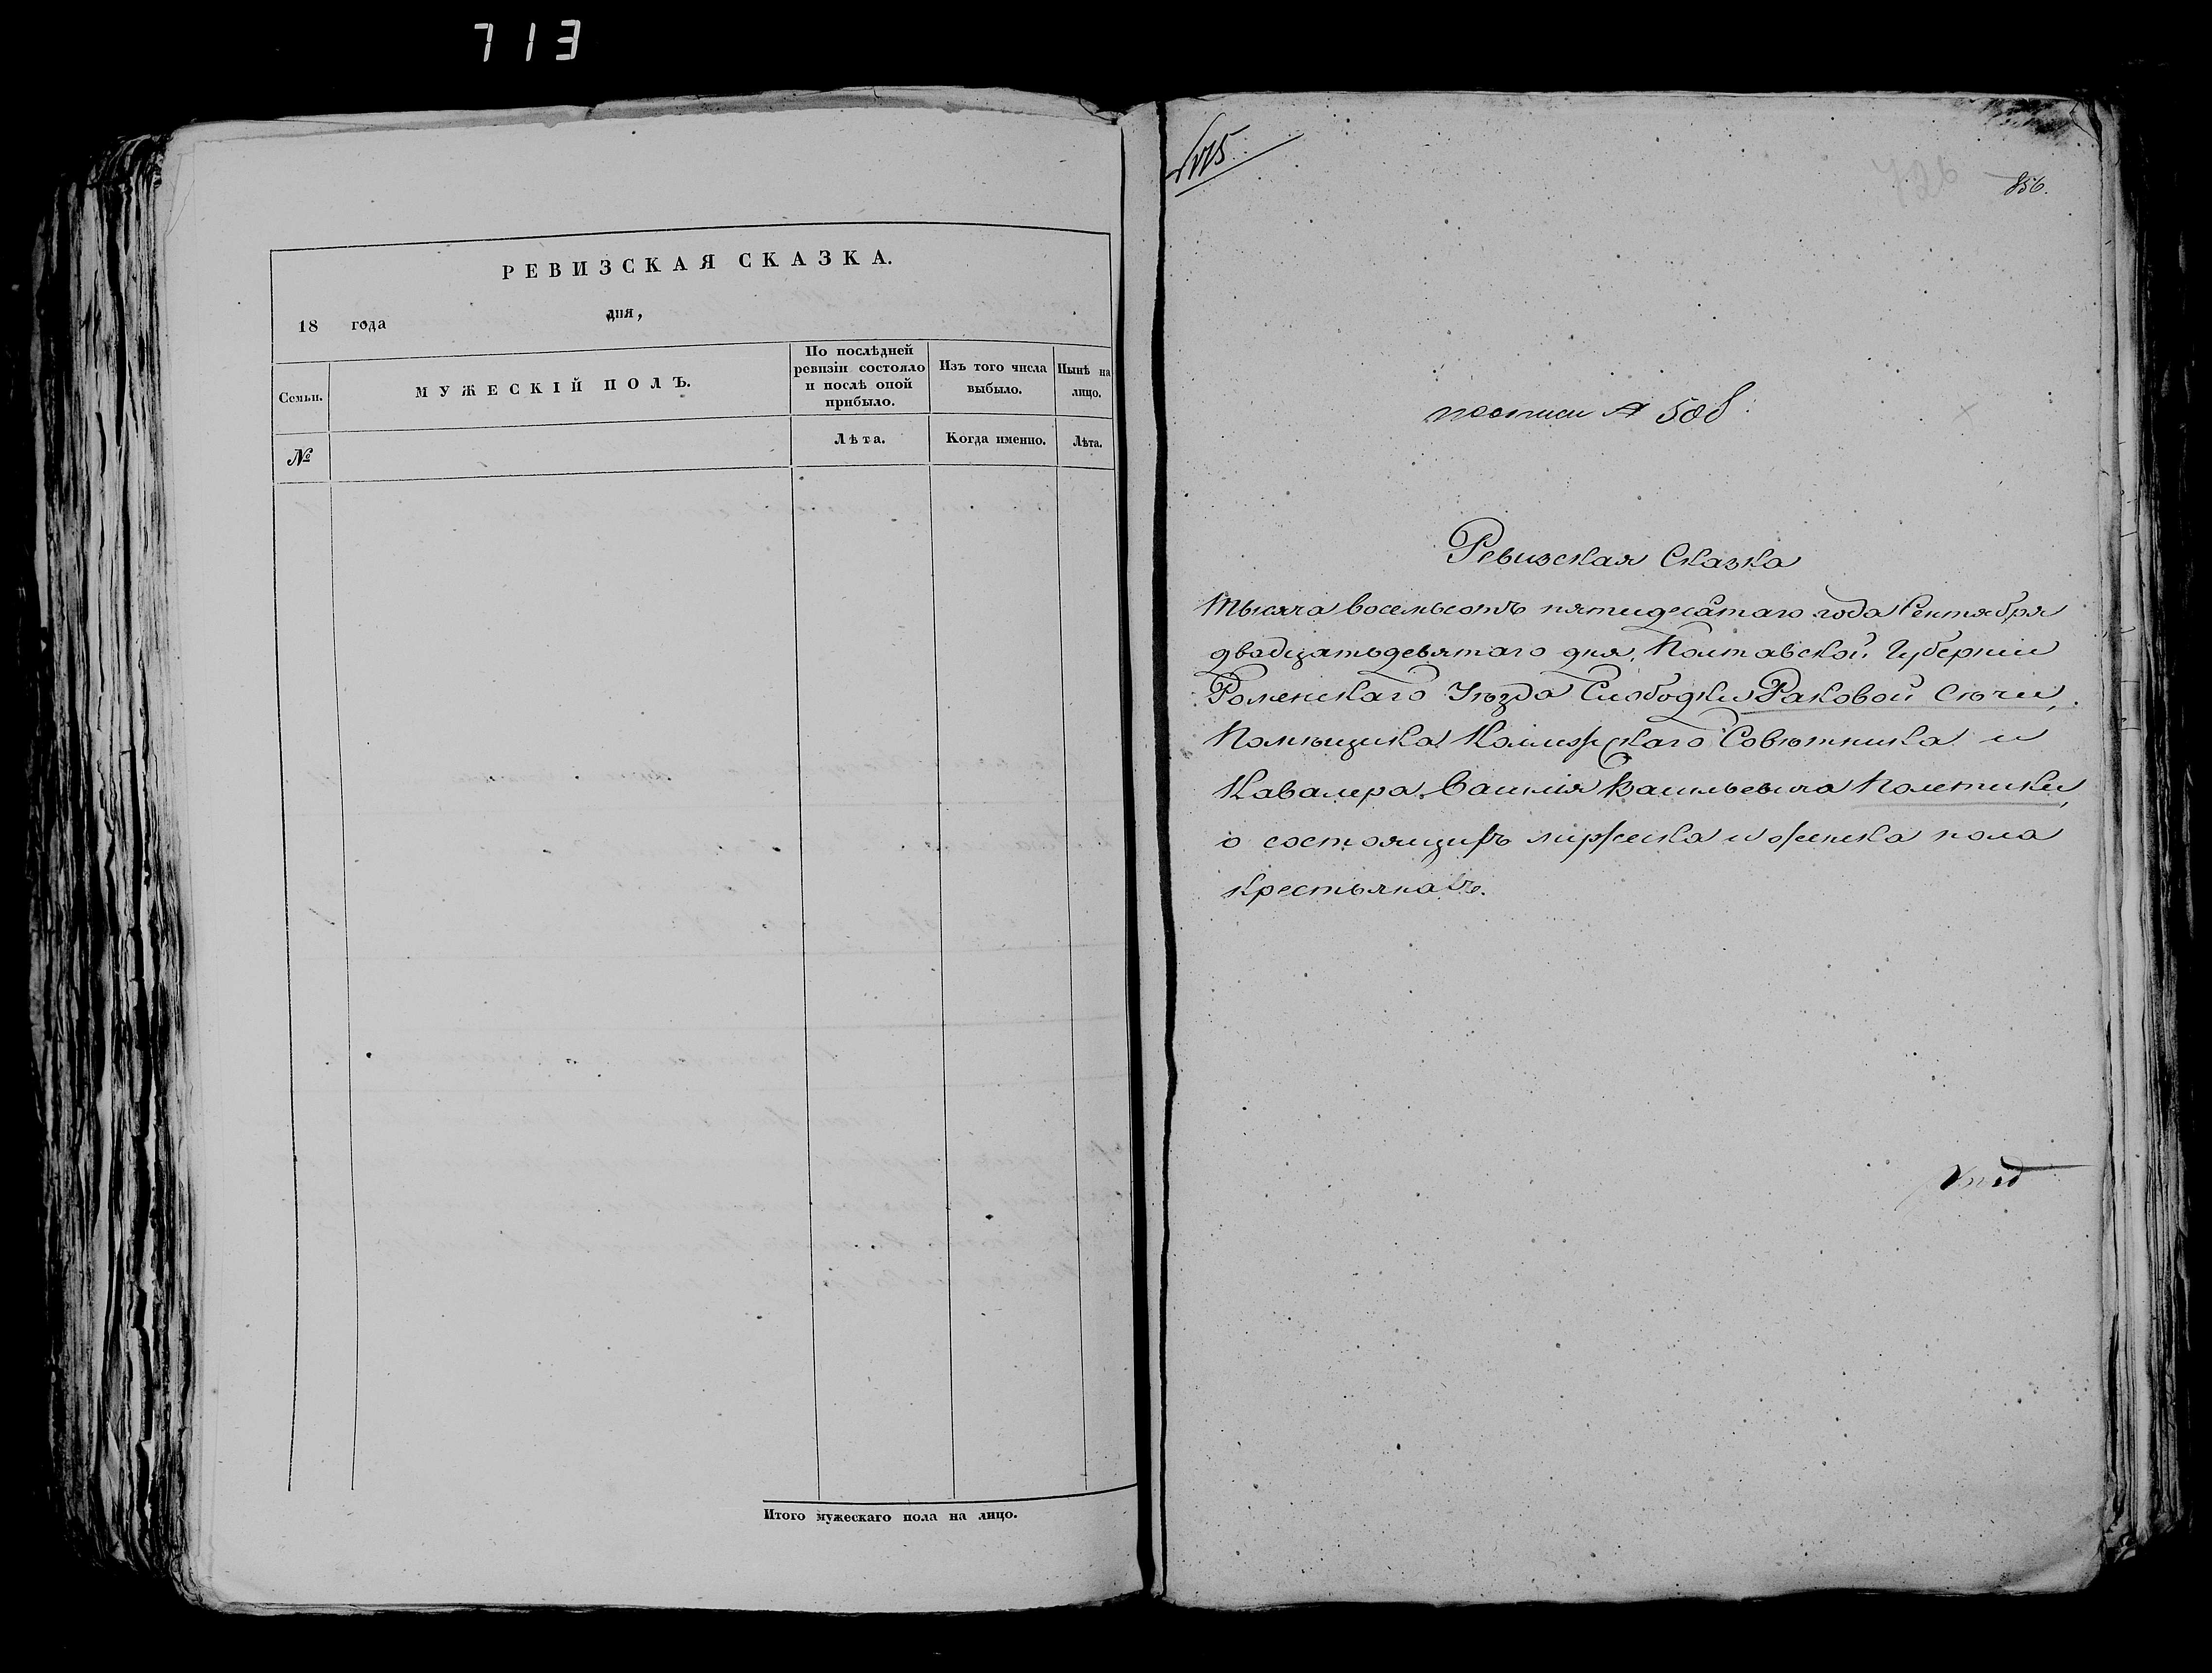 713
РЕВИЗСКАЯ СКАЗКА.
18 года дня,
Семьи.
МУЖЕСКІЙ ПОЛЪ.
По послѣдней
ревизіи состояло
и послѣ оной
прибыло.
Изъ того числа
выбыло.
Нынѣ на
лицо.
№
Лѣта.
Когда именно.
Лѣта.
Итого мужескаго пола на лицо.
856.
726
№ 508
Ревизская Сказка
Тысяча восемьсотъ пятидесятаго года Сентября
двадцатьдевятаго дня, Полтавской Губерніи
Роменскаго Уѣзда Слободки Раковой Сѣчи,
Помѣщика Коллежскаго Совѣтника и
Кавалера Василія Васильевича Полетики,
о состоящихъ мужеска и женска пола
крестьянахъ.